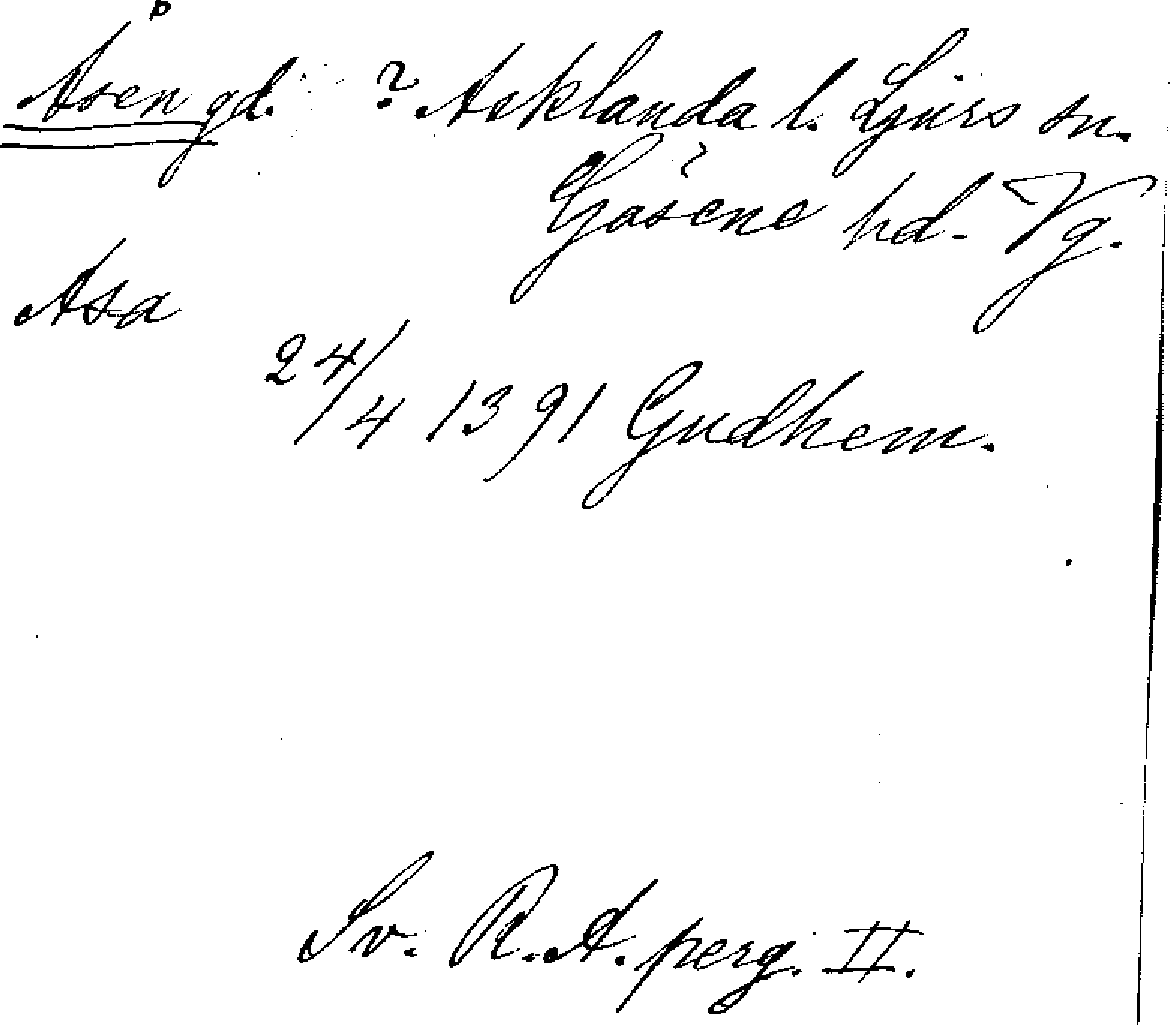 Åsen gd. ? Asklanda l. Ljurs sn.
Gäsene hd. Vg.
Asa
24/4 1391 Gudhem.
Sv. R. A. perg. II.